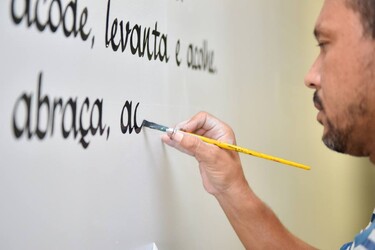 acode, levanta e acolhe.
abraça, ac